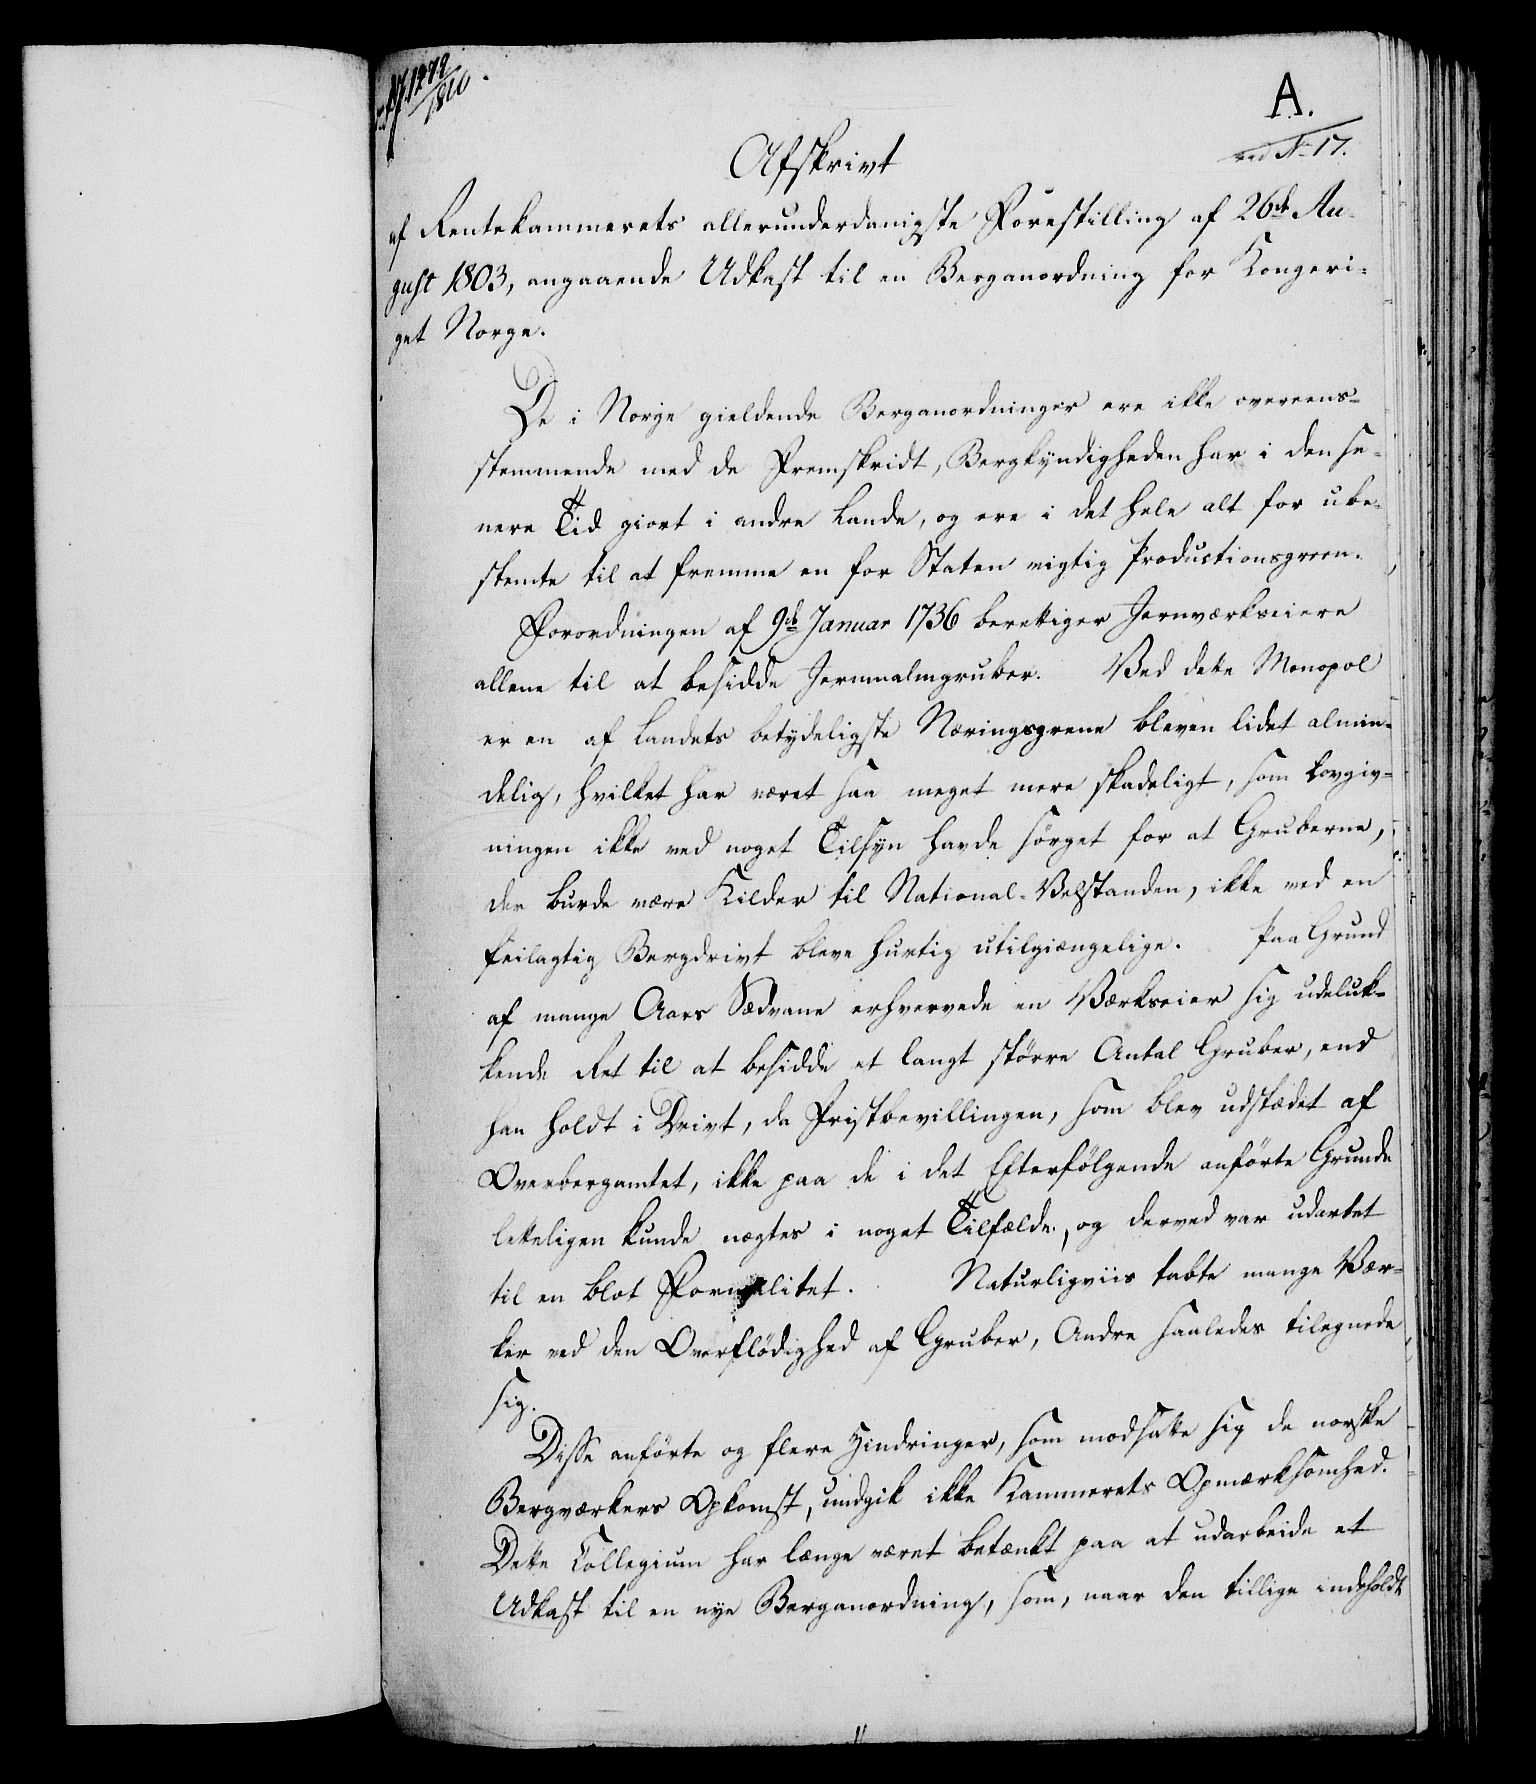 1272
1810
A.
ad No 17.
Afskrivt
af Rentekammerets allerunderdanigste Forestilling af 26de Au-
gust 1803, angaaende Udkast til en Berganordning for Kongeri-
get Norge.
De i Norge gieldende Berganordninger ere ikke overeens-
stemmende med de Fremskridt, Bergkyndigheden har i den se-
nere Tid giort i andre Lande, og ere i det hele alt for ube-
stemte til at fremme en for Staten vigtig Productionsgreen.
Forordningen af 9de Januar 1736 berettiger Jernværkseiere
allene til at besidde Jernmalmgruber. Ved dette Monopol
er en af Landets betydeligste Næringsgrene bleven lidet almin-
delig, hvilket har været saa meget mere skadeligt, som Lovgiv-
ningen ikke ved noget Tilsyn havde sörget for at Gruberne,
der burde være Kilder til National-Velstanden, ikke ved en
feilagtig Bergdrivt bleve hurtig utilgiængelige. Paa Grund
af mange Aars Sædvane erhvervede en Værkseier sig udeluk-
kende Ret til at besidde et langt större Antal Gruber, end
han holdt i Drivt, da Fristbevillingen, som blev udstædet af
Overbergamtet, ikke paa de i det Efterfölgende anförte Grunde
letteligen kunde nægtes i noget Tilfælde, og derved var udartet
til en blot Formalitet. Naturligviis tabte mange Vær-
ker ved den Overflödighed af Gruber, Andre saaledes tilegnede
sig.
Disse anförte og flere Hindringer, som modsatte sig de norske
Bergværkers Opkomst, undgik ikke Kammerets Opmærksomhed.
Dette Collegium har længe været betænkt paa at udarbeide et
Udkast til en nye Berganordning, som, naar den tillige indeholdt